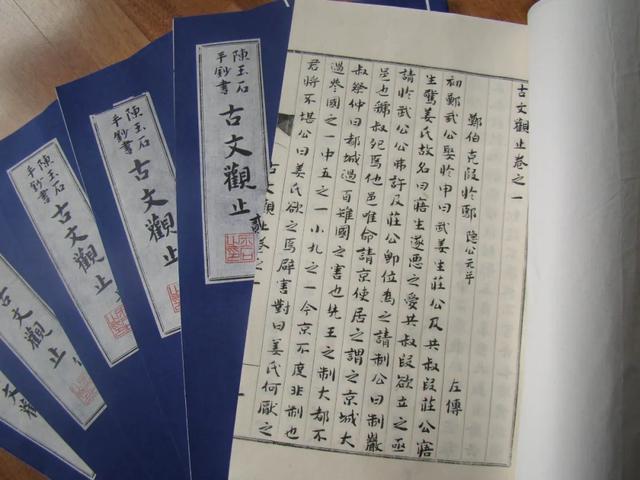 古文觀止卷之一
鄭伯克段於鄢 隱公元年 左傳
初鄭武公娶於申曰武姜生莊公及共叔段莊公寤
生驚姜氏故名曰寤生遂惡之愛共叔段欲立之亟
請於武公公弗許及莊公卽位為之請制公曰制巖
邑也虢叔死焉他邑唯命請京使居之謂之京城大
叔祭仲曰都城過百雉國之害也先王之制大都不
過參國之一中五之一小九之一今京不度非制也
君將不堪公曰姜氏欲之焉辟害對曰姜氏何厭之
古文觀止卷之一
陳玉石
手鈔書
古文觀止
陳玉石
手鈔書
古文觀止
陳玉石
手鈔書
古文觀止
古文觀止